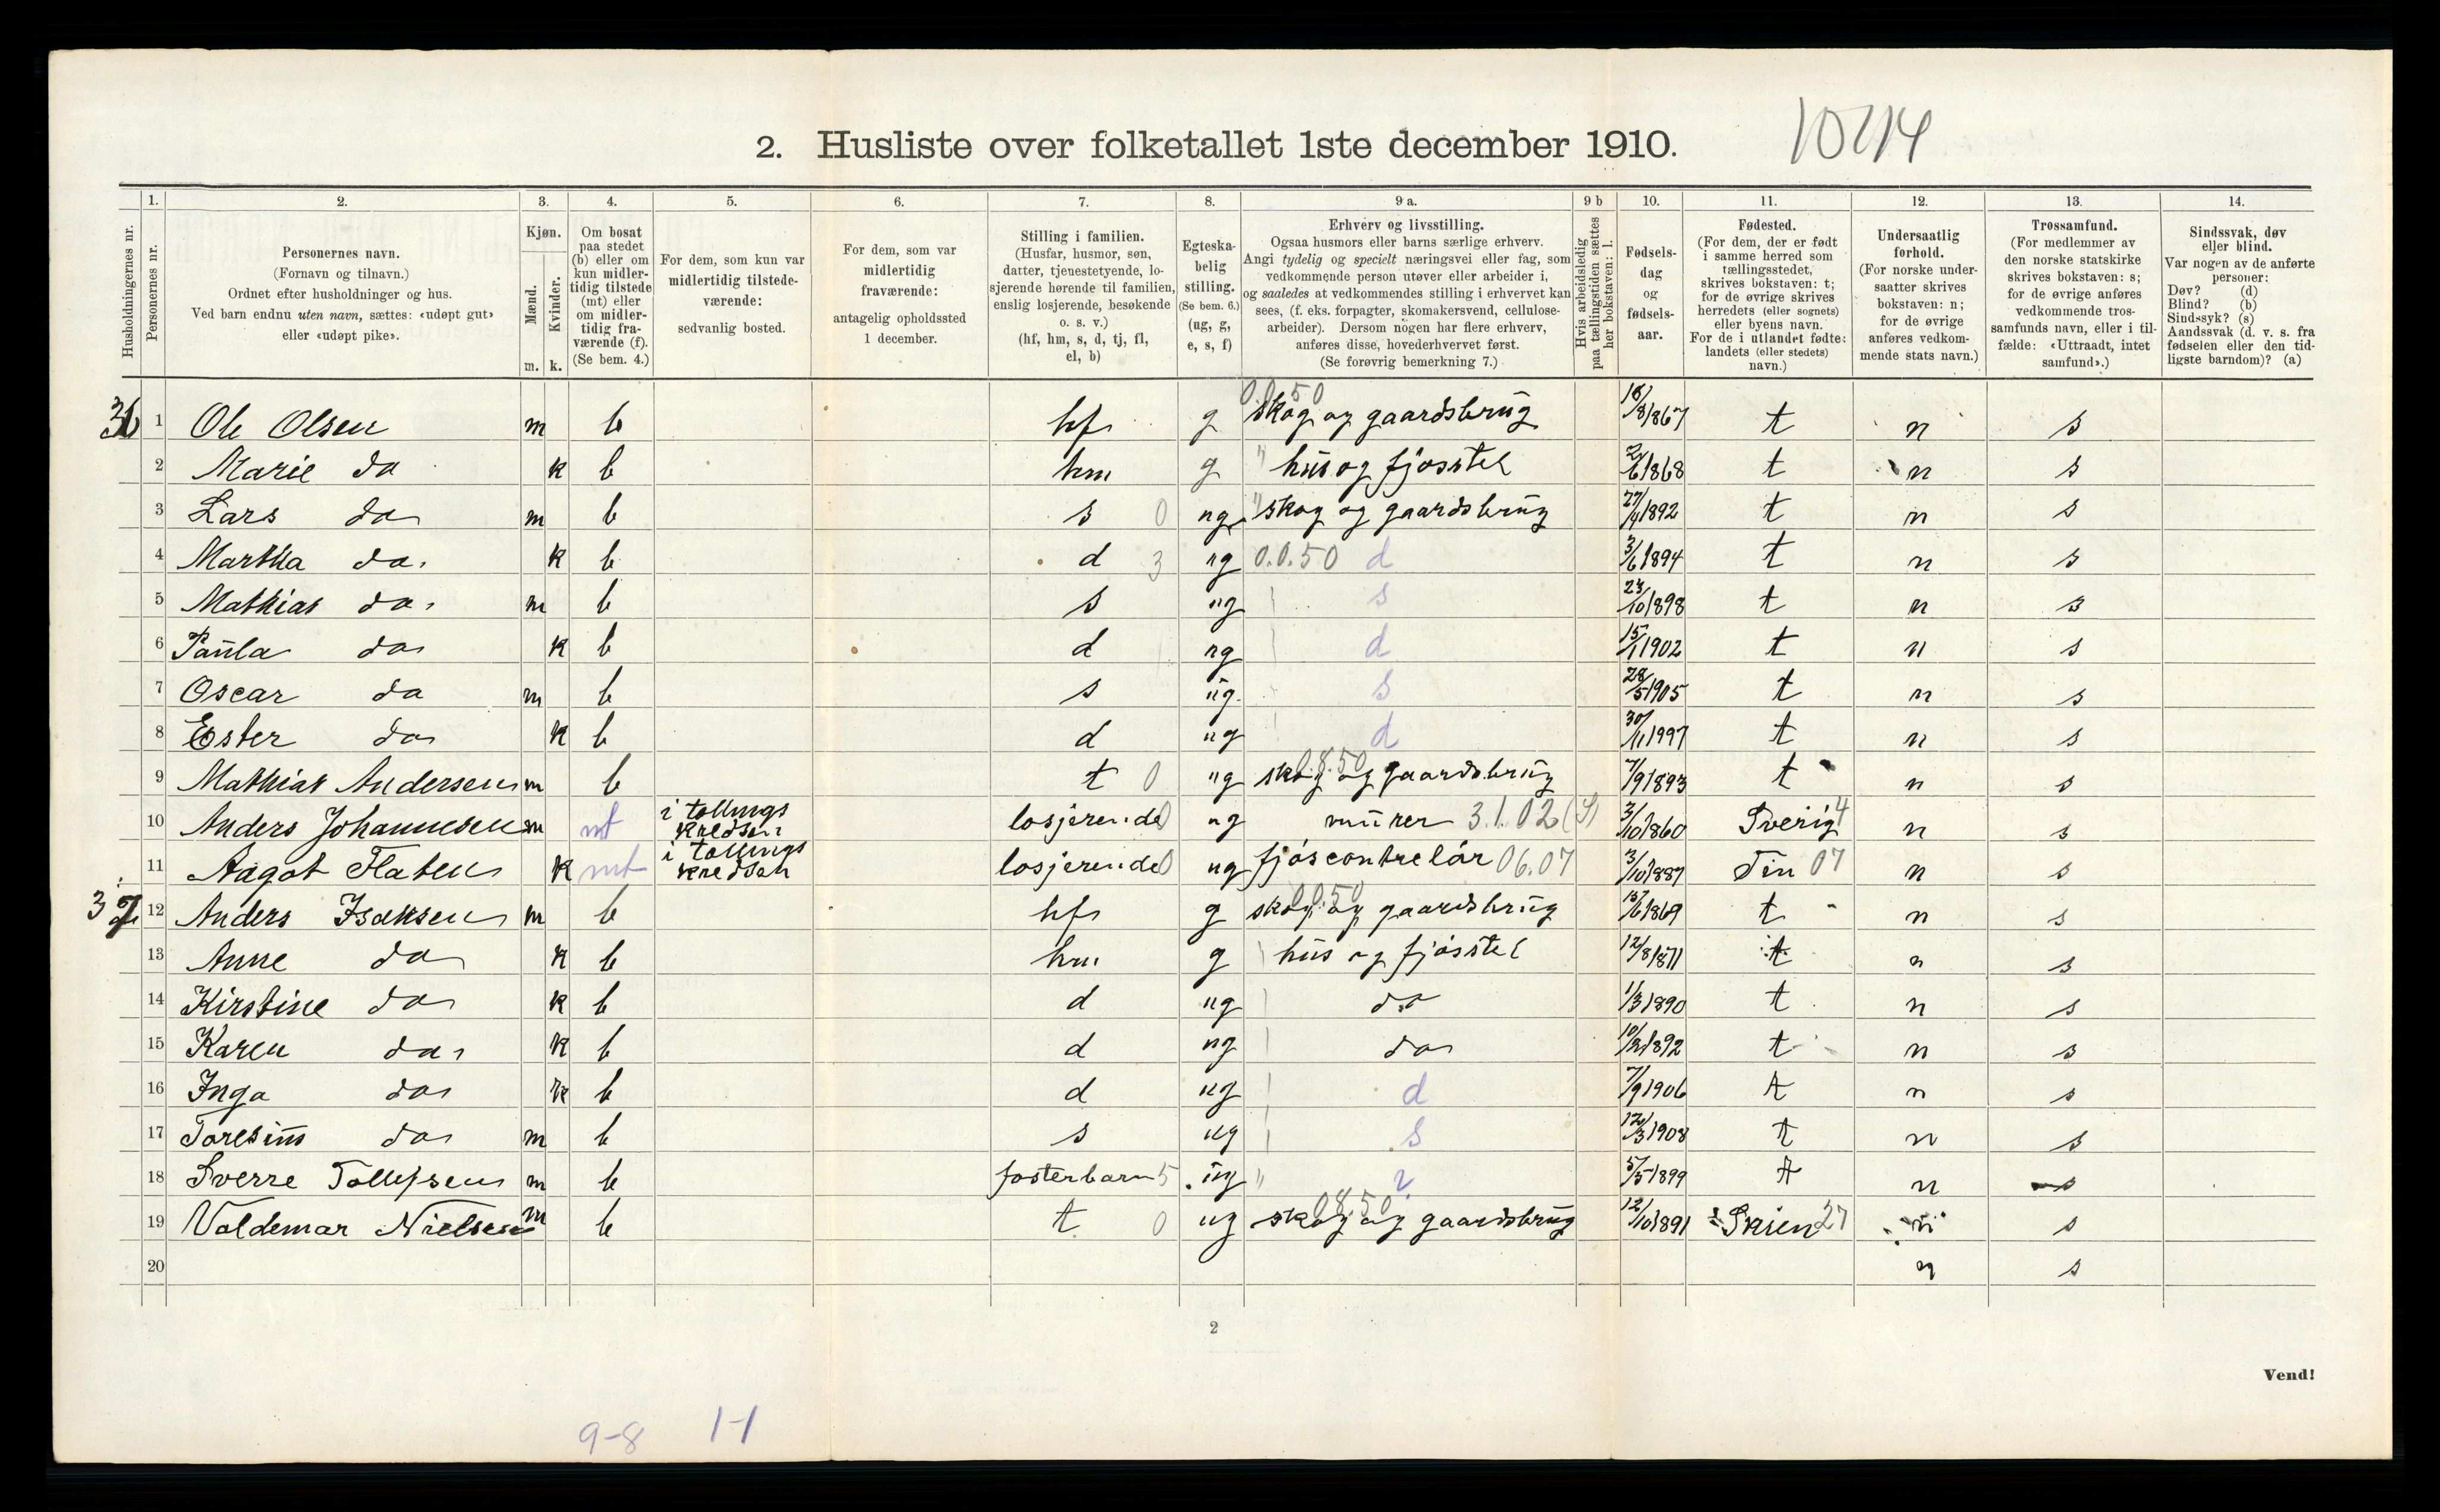 2. Husliste over folketallet 1ste december 1910.
10414
Husholdningernes nr.
1. Personernes nr.
2. Personernes navn.
(Fornavn og tilnavn.)
Ordnet efter husholdninger og hus.
Ved barn endnu uten navn, sættes: «udøpt gut»
eller «udøpt pike».
3. Kjøn.
Mænd. Kvinder.
m. k.
4. Om bosat
paa stedet
(b) eller om
kun midler-
tidig tilstede
(mt) eller
om midler-
tidig fra-
værende (f).
(Se bem. 4.)
5. For dem, som kun var
midlertidig tilstede-
værende:
sedvanlig bosted.
6. For dem, som var
midlertidig
fraværende:
antagelig opholdssted
1 december.
7. Stilling i familien.
(Husfar, husmor, søn,
datter, tjenestetyende, lo-
sjerende hørende til familien,
enslig losjerende, besøkende
o. s. v.)
(hf, hm, s, d, tj, fl,
el, b)
8. Egteska-
belig
stilling.
(Se bem. 6.)
(ug, g,
e, s, f)
9 a. Erhverv og livsstilling.
Ogsaa husmors eller barns særlige erhverv.
Angi tydelig og specielt næringsvei eller fag, som
vedkommende person utøver eller arbeider i,
og saaledes at vedkommendes stilling i erhvervet kan
sees, (f. eks. forpagter, skomakersvend, cellulose-
arbeider). Dersom nogen har flere erhverv,
anføres disse, hovederhvervet først.
(Se forøvrig bemerkning 7.)
9 b Hvis arbeidsledig
paa tællingstiden sættes
her bokstaven: l.
10. Fødsels-
dag
og
fødsels-
aar.
11. Fødested.
(For dem, der er født
i samme herred som
tællingsstedet,
skrives bokstaven: t;
for de øvrige skrives
herredets (eller sognets)
eller byens navn.
For de i utlandet fødte:
landets (eller stedets)
navn.)
12. Undersaatlig
forhold.
(For norske under-
saatter skrives
bokstaven: n;
for de øvrige
anføres vedkom-
mende stats navn.)
13. Trossamfund.
(For medlemmer av
den norske statskirke
skrives bokstaven: s;
for de øvrige anføres
vedkommende tros-
samfunds navn, eller i til-
fælde: «Uttraadt, intet
samfund».)
14. Sindssvak, døv
eller blind.
Var nogen av de anførte
personer:
Døv? (d)
Blind? (b)
Sindssyk? (s)
Aandssvak (d. v. s. fra
fødselen eller den tid-
ligste barndom)? (a)
36 1 Ole Olsen m b hf g 0.0.50 skog og gaardsbrug 18/8 1867 t n s
2 Marie do k b hm g " hus og fjosstel 2/6 1868 t n s
3 Lars do m b s 0 ug " skog og gaardsbrug 27/4 1892 t n s
4 Martha do. k b d 3 ug 0.0.50 d 3/6 1894 t n s
5 Mathias do. m b s ug s 23/10 1898 t n s
6 Paula do k b d ug d 15/1 1902 t n s
7 Oscar do m b s ug. s 28/5 1905 t n s
8 Ester do k b d ug d 30/11 1997 t n s
9 Mathias Andersen m b t 0 ug 0.8.50 skog og gaardsbrug 7/9 1893 t n s
10 Anders Johannesen m mt i tællings kredsen losjerende 0 ug murer 3.1.02 (S) 3/10 1860 Sverig 4 n s
11 Aagot Flaten k mt i tællings kredsen losjerende 0 ug fjoscontrelør 06.07 3/10 1887 Tin 07 n s
37 12 Anders Isaksen m b hf g 0.0.50 skog og gaardsbrug 13/6 1869 t n s
13 Anne do k b hm g hus og fjosstel 12/8 1871 t n s
14 Kirstine do k b d ug do 1/3 1890 t n s
15 Karen do k b d ug do 10/2 1892 t n s
16 Inga do k b d ug d 7/9 1906 t n s
17 do m b s ug s 12/3 1908 t n s
18 Sverre Tollefsen m b fosterbarn 5 ug " 2 5/5 1899 t n s
19 Valdemar Nielsen m b t 0 ug 0.8.50 skog og gaardsbrug 12/10 1891 Skien 27 n s
20 n s
2
Vend!
9-8 1-1